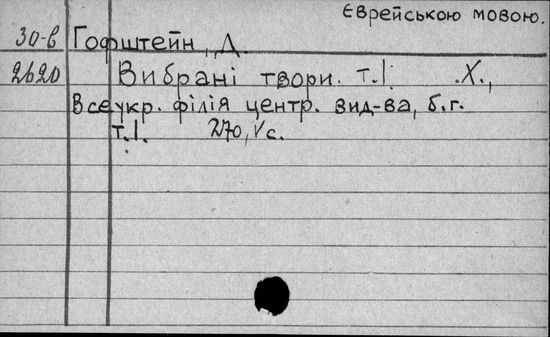 Єврейською мовою.
30-в Гофштейн, Д.
2620 Вибрані твори. т.I. .Х.,
Всеукр. філія центр. вид-ва, б.г.
т.I. 270, V с.